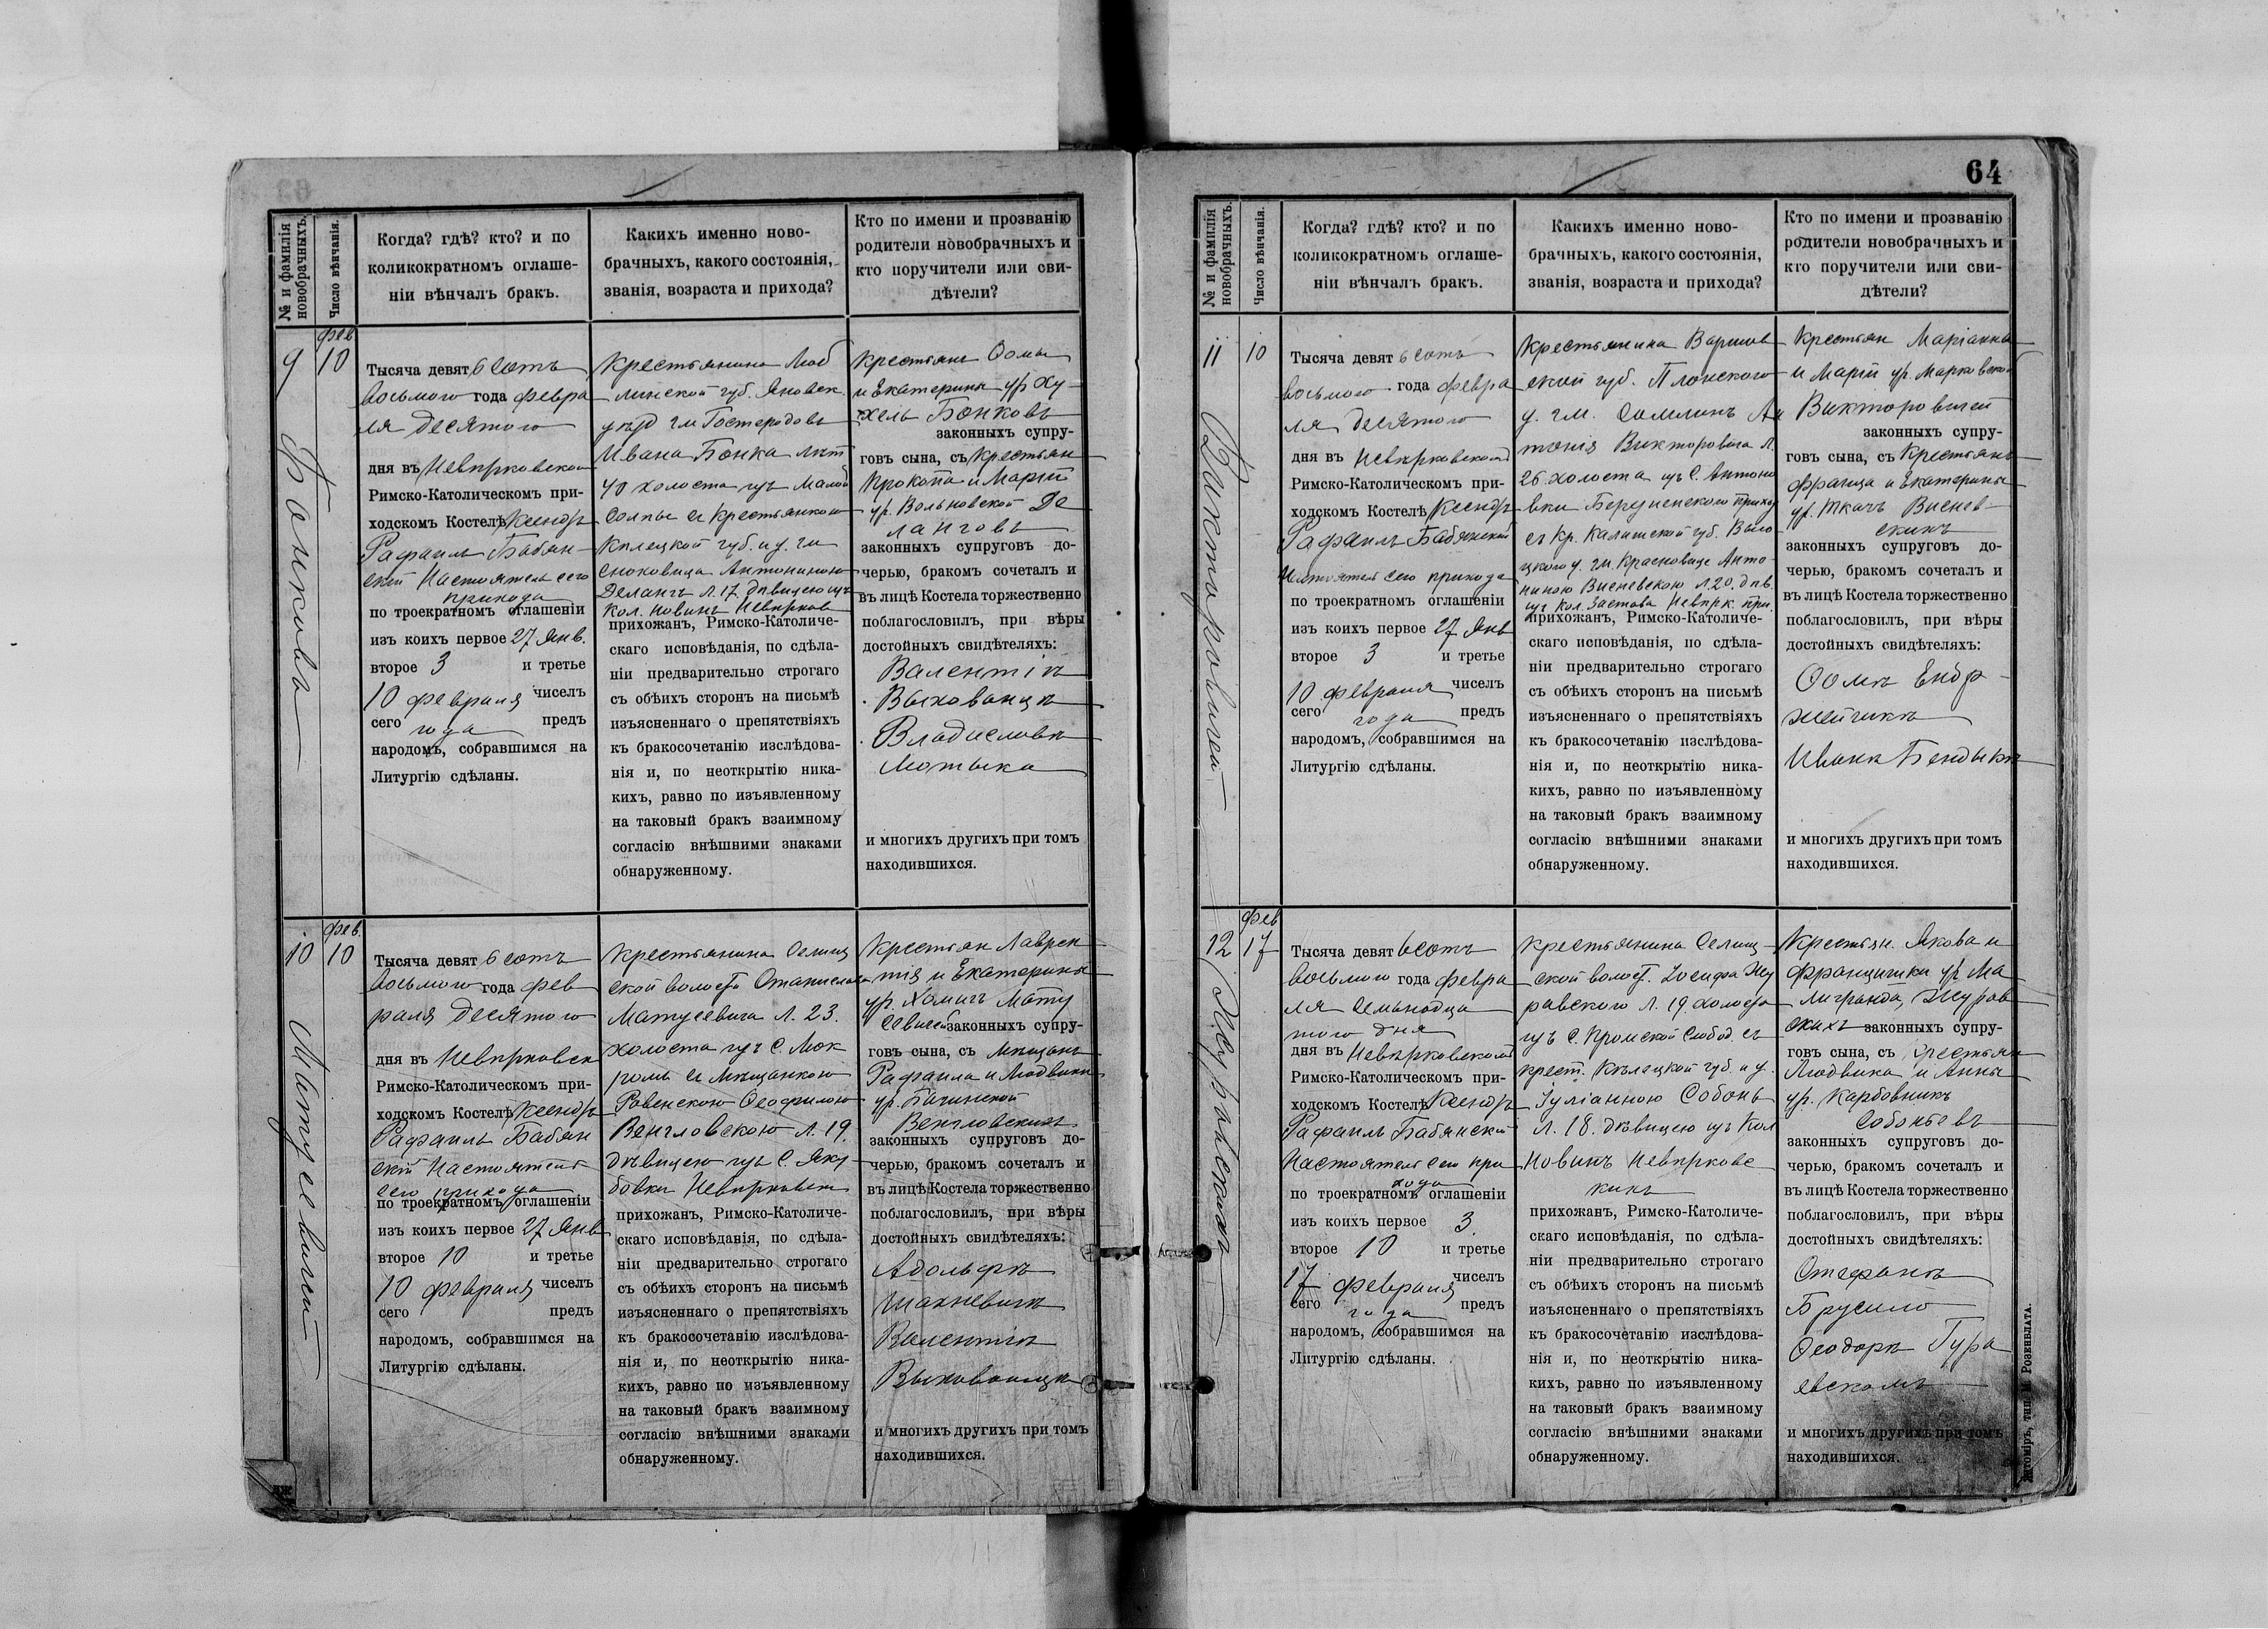 64
№ и фамилія новобрачныхъ.
Число вѣнчанія.
Когда? гдѣ? кто? и по
коликократномъ оглаше-
ніи вѣнчалъ бракъ.
Какихъ именно ново-
брачныхъ, какого состоянія,
званія, возраста и прихода?
Кто по имени и прозванію
родители новобрачныхъ и
кто поручители или сви-
дѣтели?
9
Бонкова
фев
10
Тысяча девятьсотъ
восьмого года февра
ля десятого
дня въ Невѣрковском
Римско-Католическомъ при-
ходскомъ Костелѣ Ксендзъ
Рафаилъ Бабян-
скій Настоятель сего
прихода
по троекратномъ оглашеніи
изъ коихъ первое 27 Янв.
второе 3 и третье
10 февраля чиселъ
сего года предъ
народомъ, собравшимся на
Литургію сдѣланы.
Крестьянина Люб
линской губ. Яновск.
уѣзд гм Гостерадовъ
Ивана Бонка лѣт
40 холоста изъ Малой
Солпы съ крестьянкою
Кѣлецкой губ. и у. гм
Сноховица Антониною
Делангъ Л. 17. дѣвицею изъ
Кол. Новинъ Невѣрков
прихожанъ, Римско-Католиче-
скаго исповѣданія, по сдѣла-
ніи предварительно строгаго
съ обѣихъ сторонъ на письмѣ
изъясненнаго о препятствіяхъ
къ бракосочетанію изслѣдова-
нія и, по неоткрытію ника-
кихъ, равно по изъявленному
на таковый бракъ взаимному
согласію внѣшними знаками
обнаруженному.
Крестьянъ Ѳомы
и Екатерины ур. Ху-
хель Бонковъ
законныхъ супру-
говъ сына, съ Крестьян
Прокопа и Маріи
ур. Вольновской Де
ланговъ
законныхъ супруговъ до-
черью, бракомъ сочеталъ и
въ лицѣ Костела торжественно
поблагословилъ, при вѣры
достойныхъ свидѣтеляхъ:
Валентіѣ
Выхованцѣ
Владиславѣ
Мотыка
и многихъ другихъ при томъ
находившихся.
10
Матусевичей
фев.
10
Тысяча девятьсотъ
восьмого года фев
раля десятого
дня въ Невѣрковск
Римско-Католическомъ при-
ходскомъ Костелѣ Ксендзъ
Рафаилъ Бабян
скій Настоятель
сего прихода
по троекратномъ оглашеніи
изъ коихъ первое 27 Янв
второе 10 и третье
10 февраля чиселъ
сего предъ
народомъ, собравшимся на
Литургію сдѣланы.
Крестьянина Селищ
ской волости Станислава
Матусевича Л. 23.
холоста изъ С. Мок
ромъ съ Мѣщанкою
Ровенскою Ѳеофилою
Венгловскою Л. 19.
дѣвицею изъ С. Яку
бовки Невѣрковск
прихожанъ, Римско-Католиче-
скаго исповѣданія, по сдѣла-
ніи предварительно строгаго
съ обѣихъ сторонъ на письмѣ
изъясненнаго о препятствіяхъ
къ бракосочетанію изслѣдова-
нія и, по неоткрытію ника-
кихъ, равно по изъявленному
на таковый бракъ взаимному
согласію внѣшними знаками
обнаруженному.
Крестьян Лаврен
тія и Екатерины
ур. Хомичъ Мату
севичей законныхъ супру-
говъ сына, съ Мѣщанъ
Рафаила и Людвики
ур. Бачинской
Венгловскихъ
законныхъ супруговъ до-
черью, бракомъ сочеталъ и
въ лицѣ Костела торжественно
поблагословилъ, при вѣры
достойныхъ свидѣтеляхъ:
Адольфѣ
Шахневичѣ
Валентіѣ
Выхованцѣ
и многихъ другихъ при томъ
находившихся.
№ и фамилія новобрачныхъ.
Число вѣнчанія.
Когда? гдѣ? кто? и по
коликократномъ оглаше-
ніи вѣнчалъ бракъ.
Какихъ именно ново-
брачныхъ, какого состоянія,
званія, возраста и прихода?
Кто по имени и прозванію
родители новобрачныхъ и
кто поручители или сви-
дѣтели?
11
Викторовичей
10
Тысяча девятьсотъ
восьмого года февра
ля десятого
дня въ Невѣрковском
Римско-Католическомъ при-
ходскомъ Костелѣ Ксендзъ
Рафаилъ Бабянскій
Настоятель сего прихода
по троекратномъ оглашеніи
изъ коихъ первое 27 Янв
второе 3 и третье
10 февраля чиселъ
сего года предъ
народомъ, собравшимся на
Литургію сдѣланы.
Крестьянина Варшав
ской губ. Плонского
у. гм. Сомлинъ Ан
тонія Викторовича Л.
26. холоста изъ С. Антоно
вки Березненского прихо
съ Кр. Калишской губ.
у. гм. Красновице Анто-
ниною Висневскою Л. 20. дѣв.
изъ Кол. Застава Невѣрк. при.
прихожанъ, Римско-Католиче-
скаго исповѣданія, по сдѣла-
ніи предварительно строгаго
съ обѣихъ сторонъ на письмѣ
изъясненнаго о препятствіяхъ
къ бракосочетанію изслѣдова-
нія и, по неоткрытію ника-
кихъ, равно по изъявленному
на таковый бракъ взаимному
согласію внѣшними знаками
обнаруженному.
Крестьян Маріанна
и Маріи ур. Марковской
Викторовичей
законныхъ супру-
говъ сына, съ Крестьянъ
Франца и Екатерины
ур. Ткачъ Виснев-
скихъ
законныхъ супруговъ до-
черью, бракомъ сочеталъ и
въ лицѣ Костела торжественно
поблагословилъ, при вѣры
достойныхъ свидѣтеляхъ:
Ѳомѣ Ендр-
жейчикѣ
Иванѣ Бендыкѣ
и многихъ другихъ при томъ
находившихся.
12
Журавскихъ
фев
17
Тысяча девятьсотъ
восьмого года февра
ля семьнадца
того дня
дня въ Невѣрковском
Римско-Католическомъ при-
ходскомъ Костелѣ Ксендзъ
Рафаилъ Бабянскій
Настоятель сего при
хода
по троекратномъ оглашеніи
изъ коихъ первое 3
второе 10 и третье
17 февраля чиселъ
сего года предъ
народомъ, собравшимся на
Литургію сдѣланы.
Крестьянина Селищ-
ской волост. Іосифа Жу
равского Л. 19 холоста
изъ С. Слобод. съ
крест. Кѣлецкой губ. и у.
Іуліанною Собонь
Л. 18. дѣвицею изъ Кол
Новинъ Невѣрковс
кихъ
прихожанъ, Римско-Католиче-
скаго исповѣданія, по сдѣла-
ніи предварительно строгаго
съ обѣихъ сторонъ на письмѣ
изъясненнаго о препятствіяхъ
къ бракосочетанію изслѣдова-
нія и, по неоткрытію ника-
кихъ, равно по изъявленному
на таковый бракъ взаимному
согласію внѣшними знаками
обнаруженному.
Крестьян. Якова и
Францишки ур. Ма
лигранда, Журав
скихъ законныхъ супру-
говъ сына, съ Крестьян
Людвика и Анны
ур. Карбовникъ
Собоньевъ
законныхъ супруговъ до-
черью, бракомъ сочеталъ и
въ лицѣ Костела торжественно
поблагословилъ, при вѣры
достойныхъ свидѣтеляхъ:
Стефанѣ
Брусило
Ѳеодорѣ Гура
евскомъ
и многихъ другихъ при томъ
находившихся.
Житоміръ, тип. М. Розенблата.